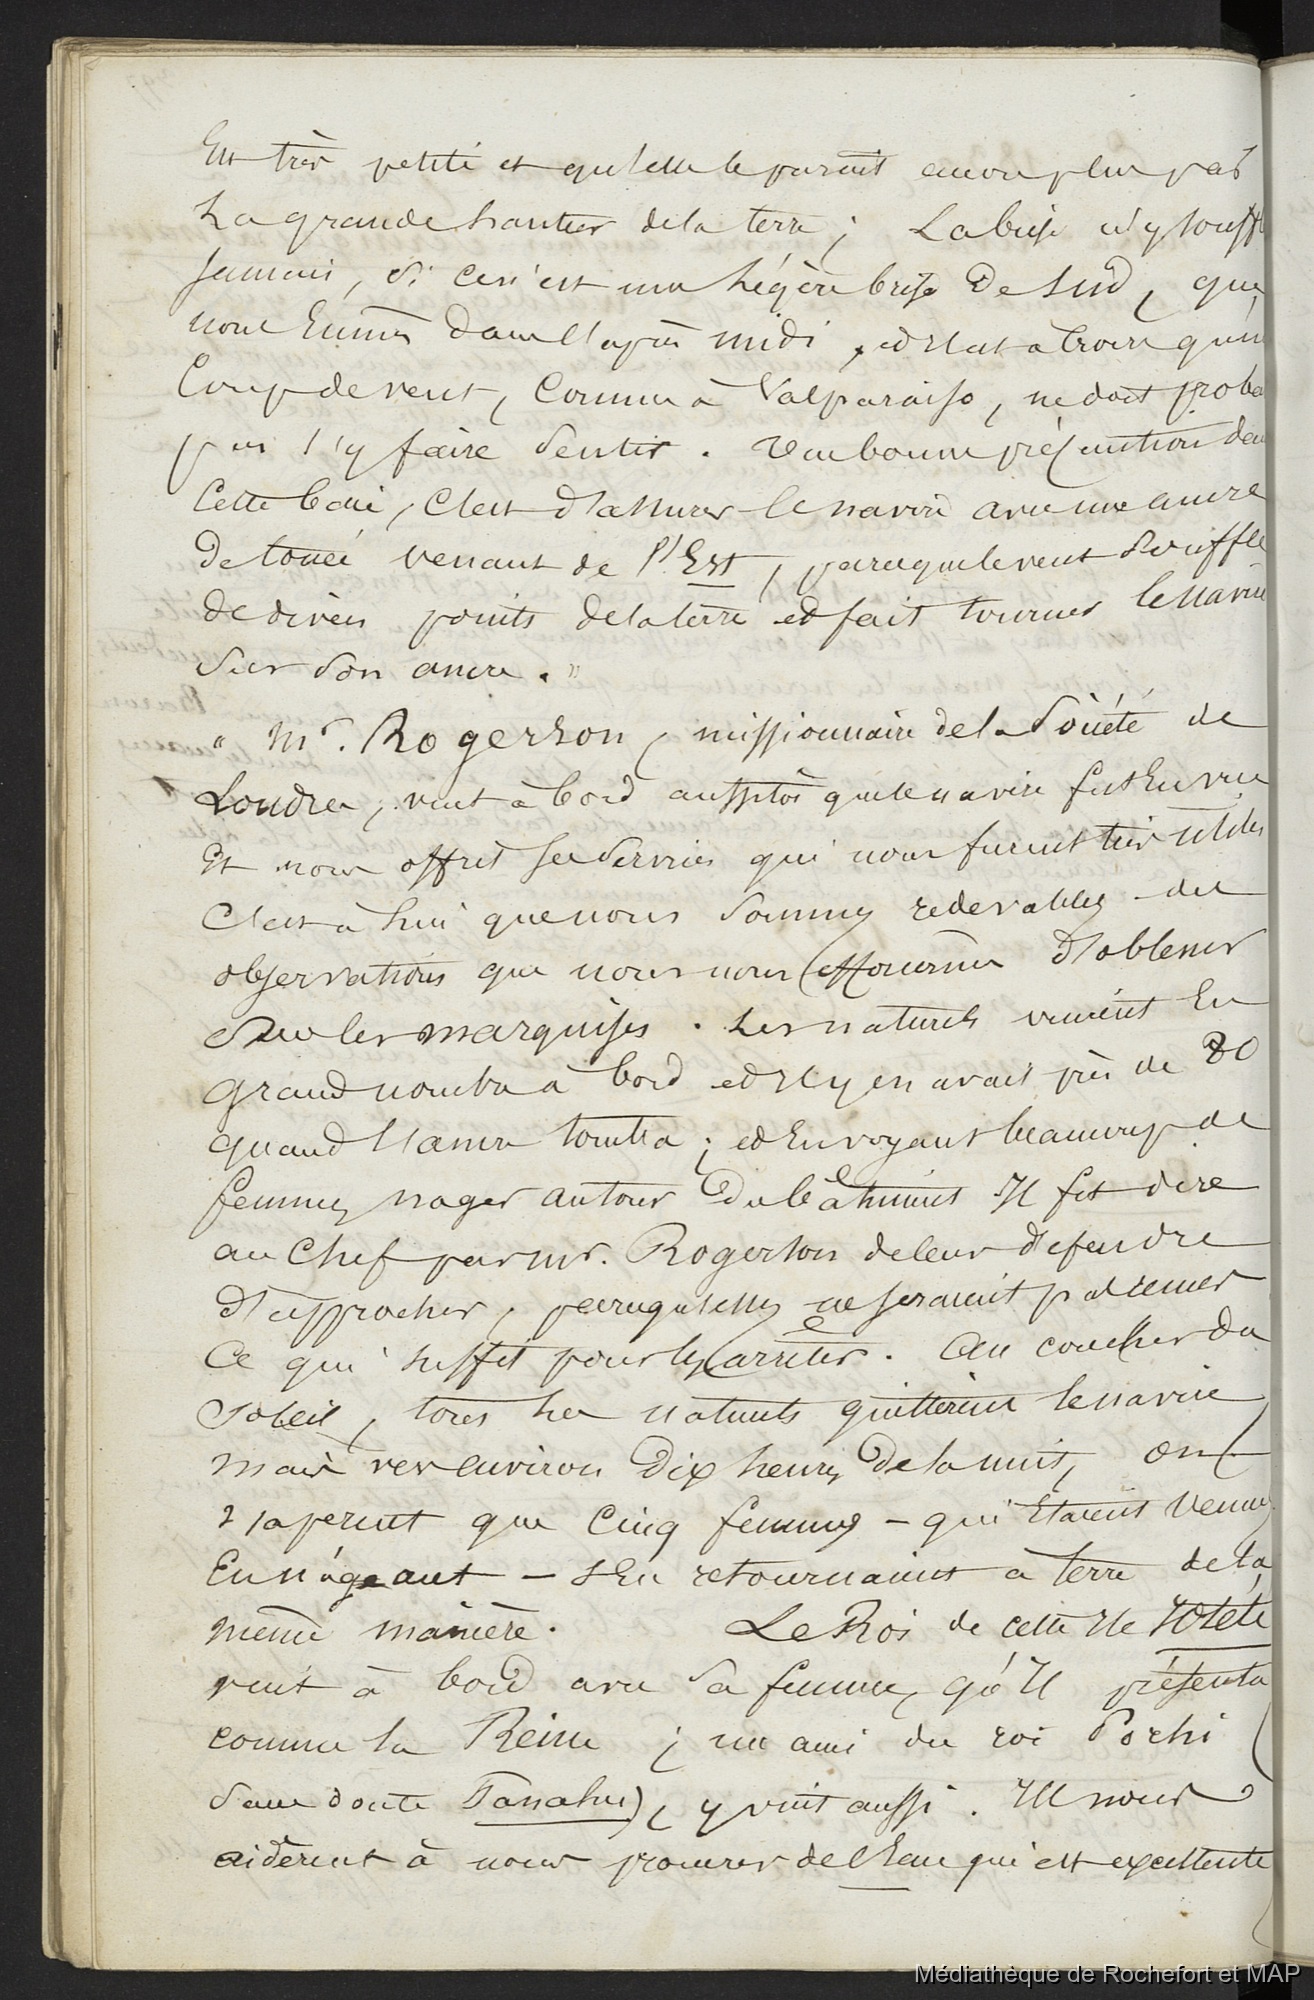 Est très petite et qu'elle le parait encore plus par
La grande hauteur de la terre ; La brise n'y souffle
jamais, si ce n'est une légère brise de sud, que
nous Eumes dans l'après midi, et Il est à croire qu'un
Coup de vent, Comme à Valparaiso, ne doit proba
pas s'y faire sentir. Une bonne précaution dans
Cette baie, C'est d'assurer le navire avec une ancre
de touée venant de l'Est, parceque le vent souffle
de divers points de la terre et fait tourner le navire
sur son ancre. "
" Mr. Rogerson, missionnaire de la Société de
Londres, vint à bord aussitôt que le navire fut En vue
Et nous offrit ses services qui nous furent très utiles
C'est à lui que nous sommes redevables des
observations que nous nous efforcames d'obtenir
sur les marquises. Les naturels vinrent En
grand nombre à bord et Il y en avait près de 80
quand l'ancre tomba ; et En voyant beaucoup de
femmes nager autour du bâtiment Il fit dire
au Chef par mr. Rogerson de leur défendre
d'approcher, parcequ'elles ne seraient pas reçues
Ce qui suffit pour les arrêter. Au coucher du
Soleil, tous les naturels quittèrent le navire
mais vers environ Dix heures de la nuit, on
s'aperçut que Cinq femmes – qui Etaient venues
En nageant – s'En retournaient à terre de la
même manière. Le Roi de cette Ile Iotété
vint à bord avec sa femme, qu'Il présenta
comme la Reine ; un ami du roi Porhi
sans doute Tanahu), y vint aussi. Ils nous
aidèrent à nous procurer de l'Eau qui est excellente
Médiathèque de Rochefort et MAP